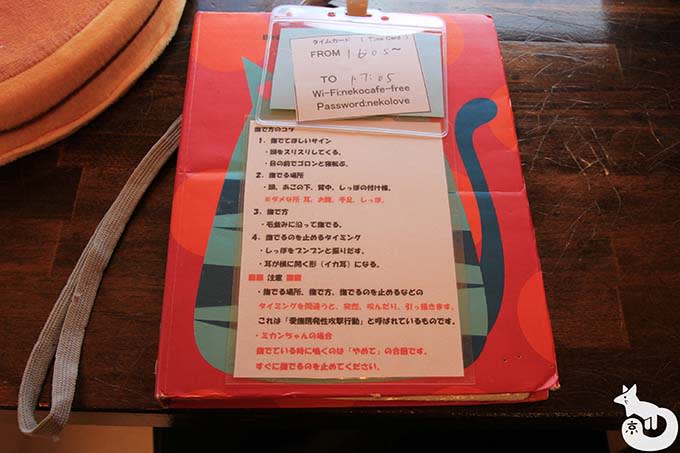 タイムカード ( Time Card )
FROM 16:05~
TO 17:05
Wi-Fi:nekocafe-free
Password:nekolove
撫で方のコツ
1．撫でてほしいサイン
・頭をスリスリしてくる。
・目の前でゴロンと寝転ぶ。
2．撫でる場所
・頭、あごの下、背中、しっぽの付け根。
※ダメな所 耳、お腹、手足、しっぽ。
3．撫で方
・毛並みに沿って撫でる。
4．撫でるのを止めるタイミング
・しっぽをブンブンと振りだす。
・耳が横に開く形（イカ耳）になる。
注意
・撫でる場所、撫で方、撫でるのを止めるなどの
タイミングを間違うと、突然、咬んだり、引っ掻きます。
これは「愛撫誘発性攻撃行動」と呼ばれているものです。
・ミカンちゃんの場合
撫でている時に鳴くのは「やめて」の合図です。
すぐに撫でるのを止めてください。
京